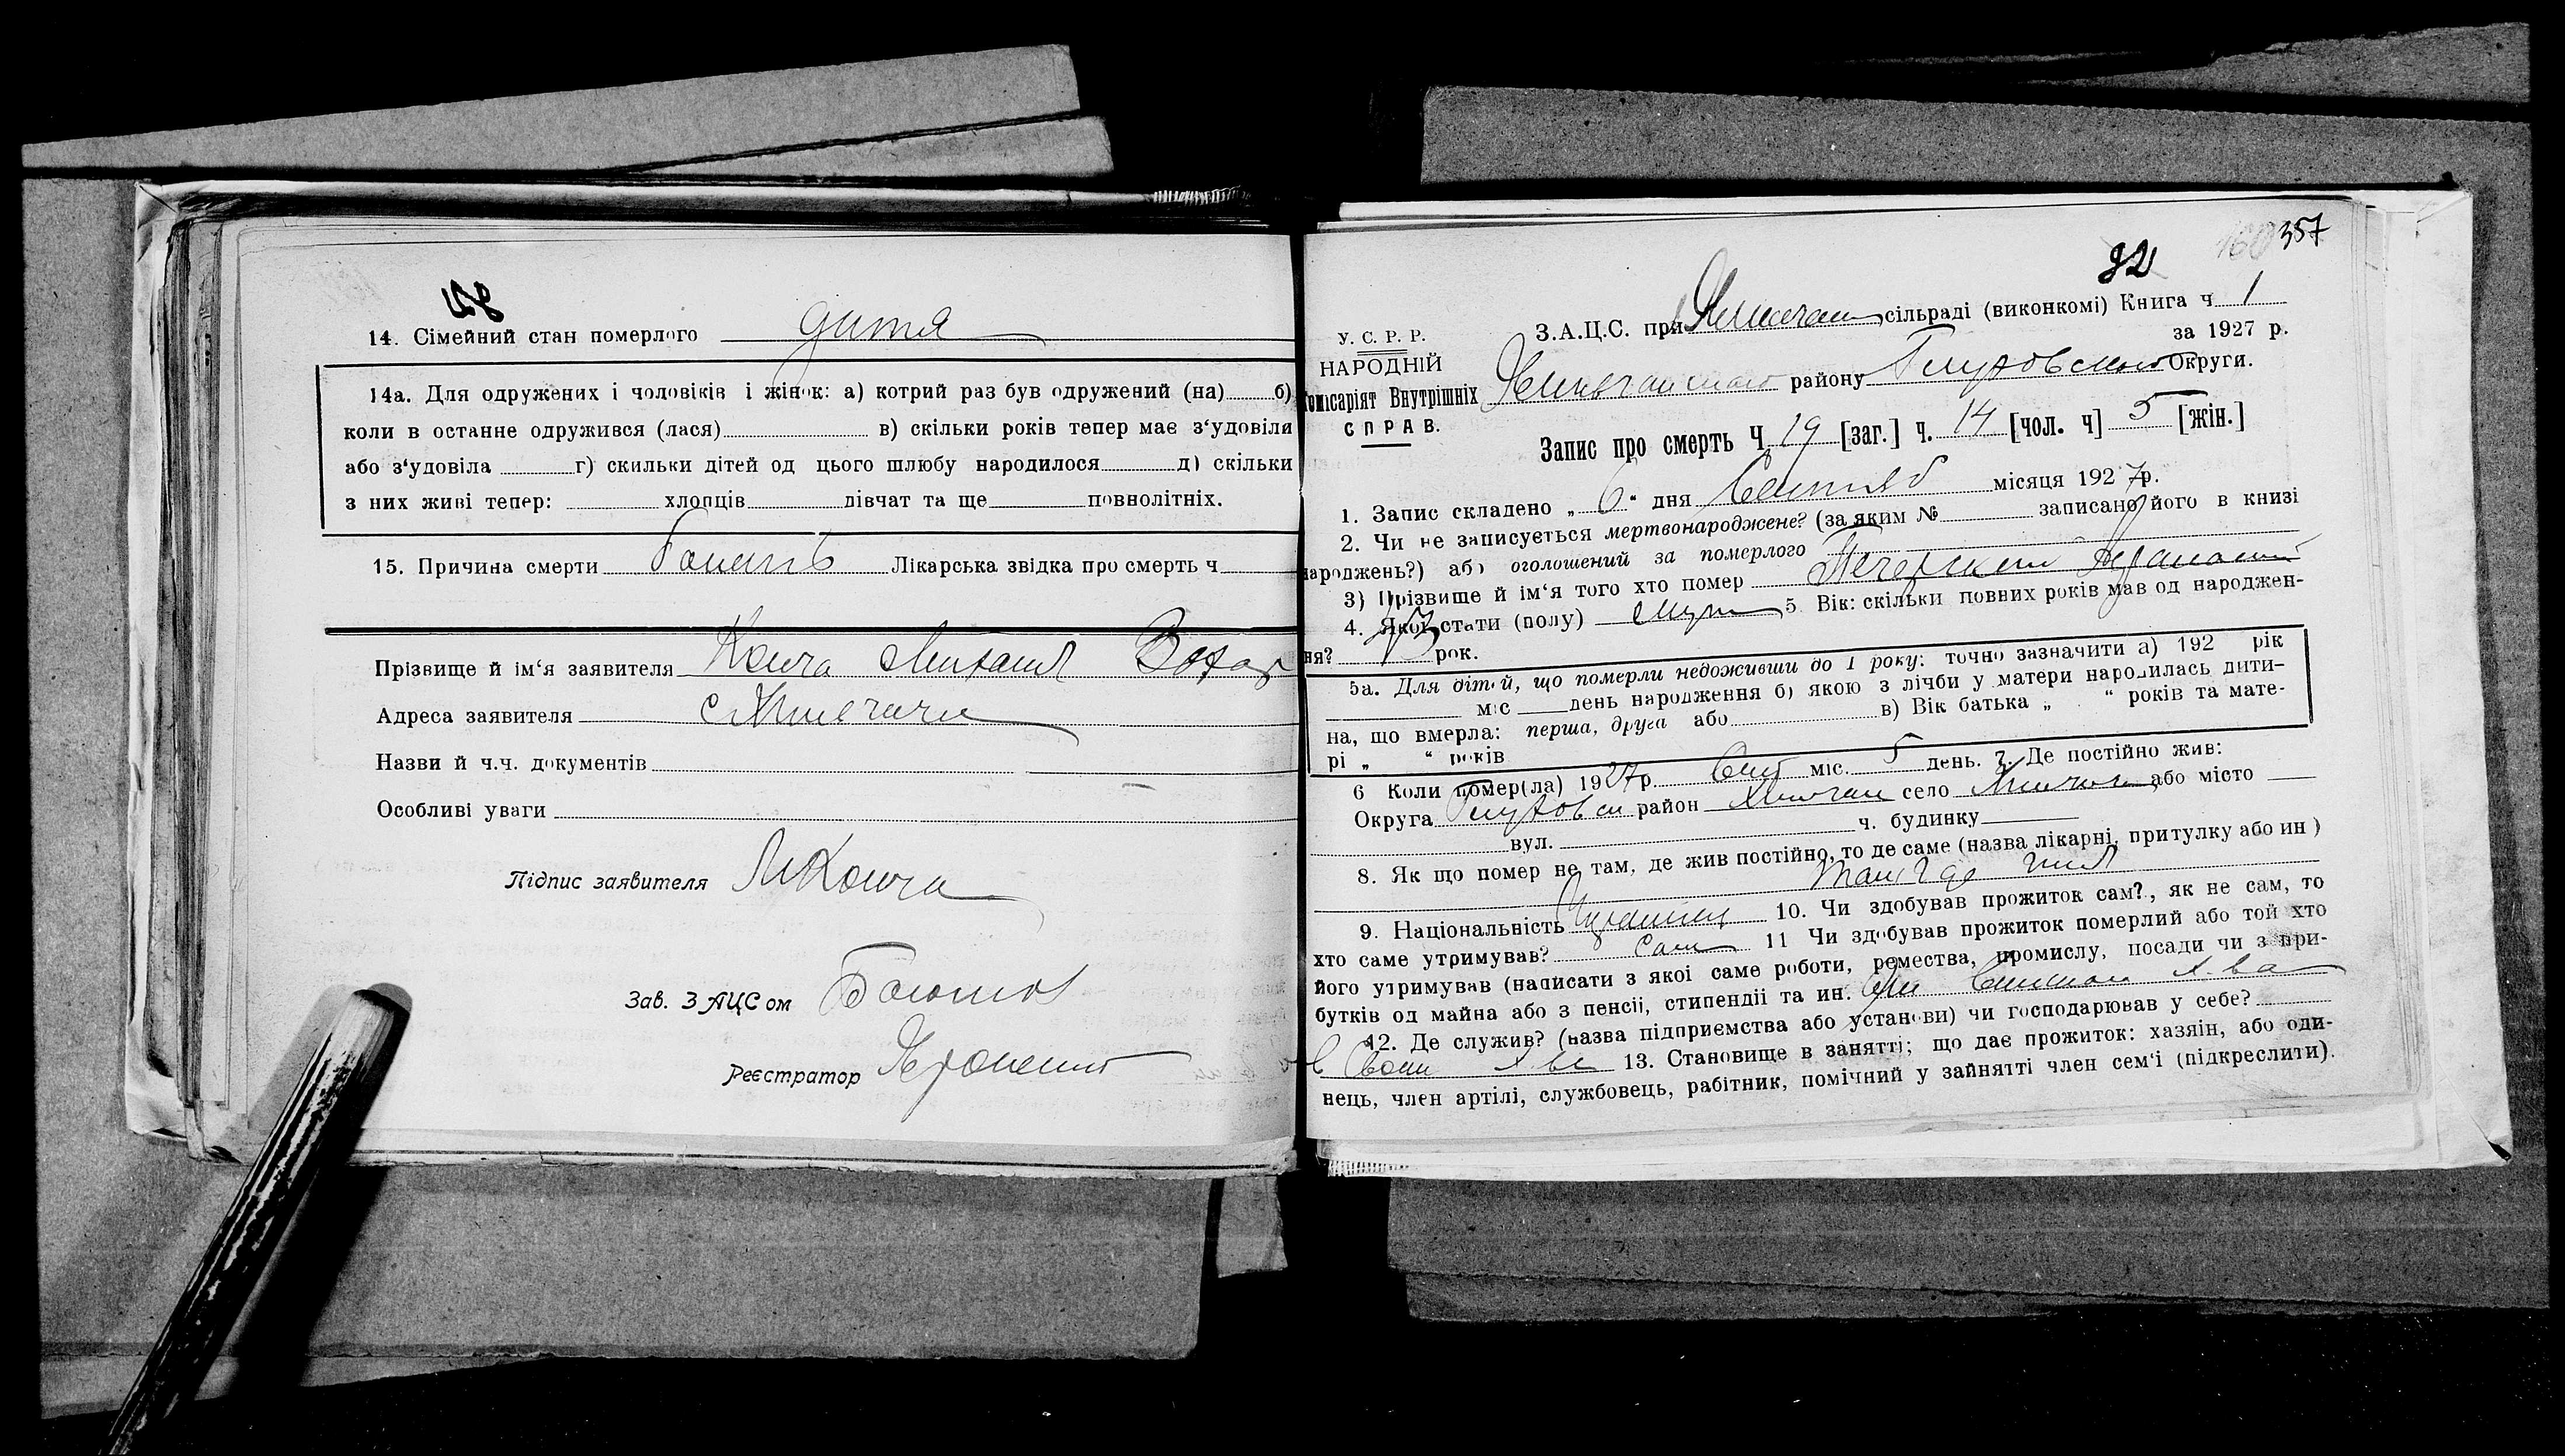 14. Сімейний стан померлого дитя
14а. Для одружених і чоловіків і жінок: а) котрий раз був одружений (на) б)
коли в останне одружився (лася) в) скільки років тепер має з‘удовіли
або з‘удовіла г) скильки дітей од цього шлюбу народилося д) скільки
з них живі тепер: хлопців дівчат та ще повнолітніх.
15. Причина смерти Лікарська звідка про смерть ч
Прізвище й ім‘я заявителя Михаил Захар
Адреса заявителя с
Назви й ч.ч. документів
Особливі уваги
Підпис заявителя
Зав. ЗАЦСом
Реєстратор
357
92
У. С. Р. Р.
НАРОДНІЙ
Комісаріят Внутрішніх
СПРАВ.
З.А.Ц.С. при сільраді (виконкомі) Книга ч 1
за 1927 р.
району Глуховского Округи.
Запис про смерть Ч 19 [заг.] ч. 14 [чол. ч] 5 [жін.]
1. Запис складено „ 6 “ дня Сентяб місяця 1927 р.
2. Чи не записується мертвонароджене? (за яким № записано його в книзі
народжень?) або оголошений за померлого
3) Прізвище й ім‘я того хто помер
4. Якої стати (полу) муж 5 Вік: скільки повних років мав од народжен-
ня? рок.
5а. Для дітей, що померли недоживши до 1 року: точно зазначити а) 192 рік
міс день народження б) якою з лічби у матери народилась дити-
на, що вмерла: перша, друга або в) Вік батька „ “ років та мате-
рі „ “ років
6 Коли помер(ла) 1927 р. Сент міс. 5 день. 7. Де постійно жив:
Округа Глуховск район село або місто
вул. ч. будинку
8. Як що помер не там, де жив постійно, то де саме (назва лікарні, притулку або ин)
там где жил
9. Національність Украинец 10. Чи здобував прожиток сам?, як не сам, то
хто саме утримував? сам 11 Чи здобував прожиток померлий або той хто
його утримував (написати з якоі саме роботи, ремества, промислу, посади чи з при-
бутків од майна або з пенсіі, стипендіі та ин. х-ва
12. Де служив? (назва підприємства або установи) чи господарював у себе?
в своем х-ве 13. Становище в занятті; що дає прожиток: хазяін, або оди-
нець, член артілі, службовець, рабітник, помічний у зайнятті член сем‘і (підкреслити).